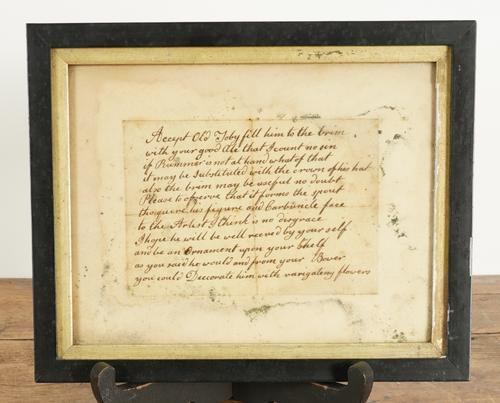 Accept Old Toby fill him to the brim
with your good Ale that I count no sin
if Rummer is not at hand what of that
it may be Substituted with the crown of his hat
also the brim may be useful no doubt
Please to observe that it forms the spout
tho queer his figure and Carbuncle face
to the Artist I think is no disgrace
I hope he will be well receved by your self
and be an Ornament upon your Shelf
as you said he would and from your Bower
you could Decorate him with varigating flowers